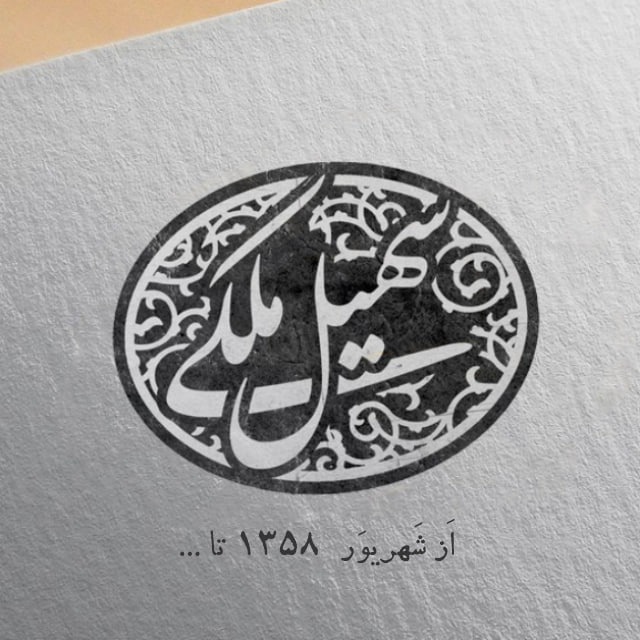 سهیل ملکی
اَز شَهریوَر ۱۳۵۸ تا ...